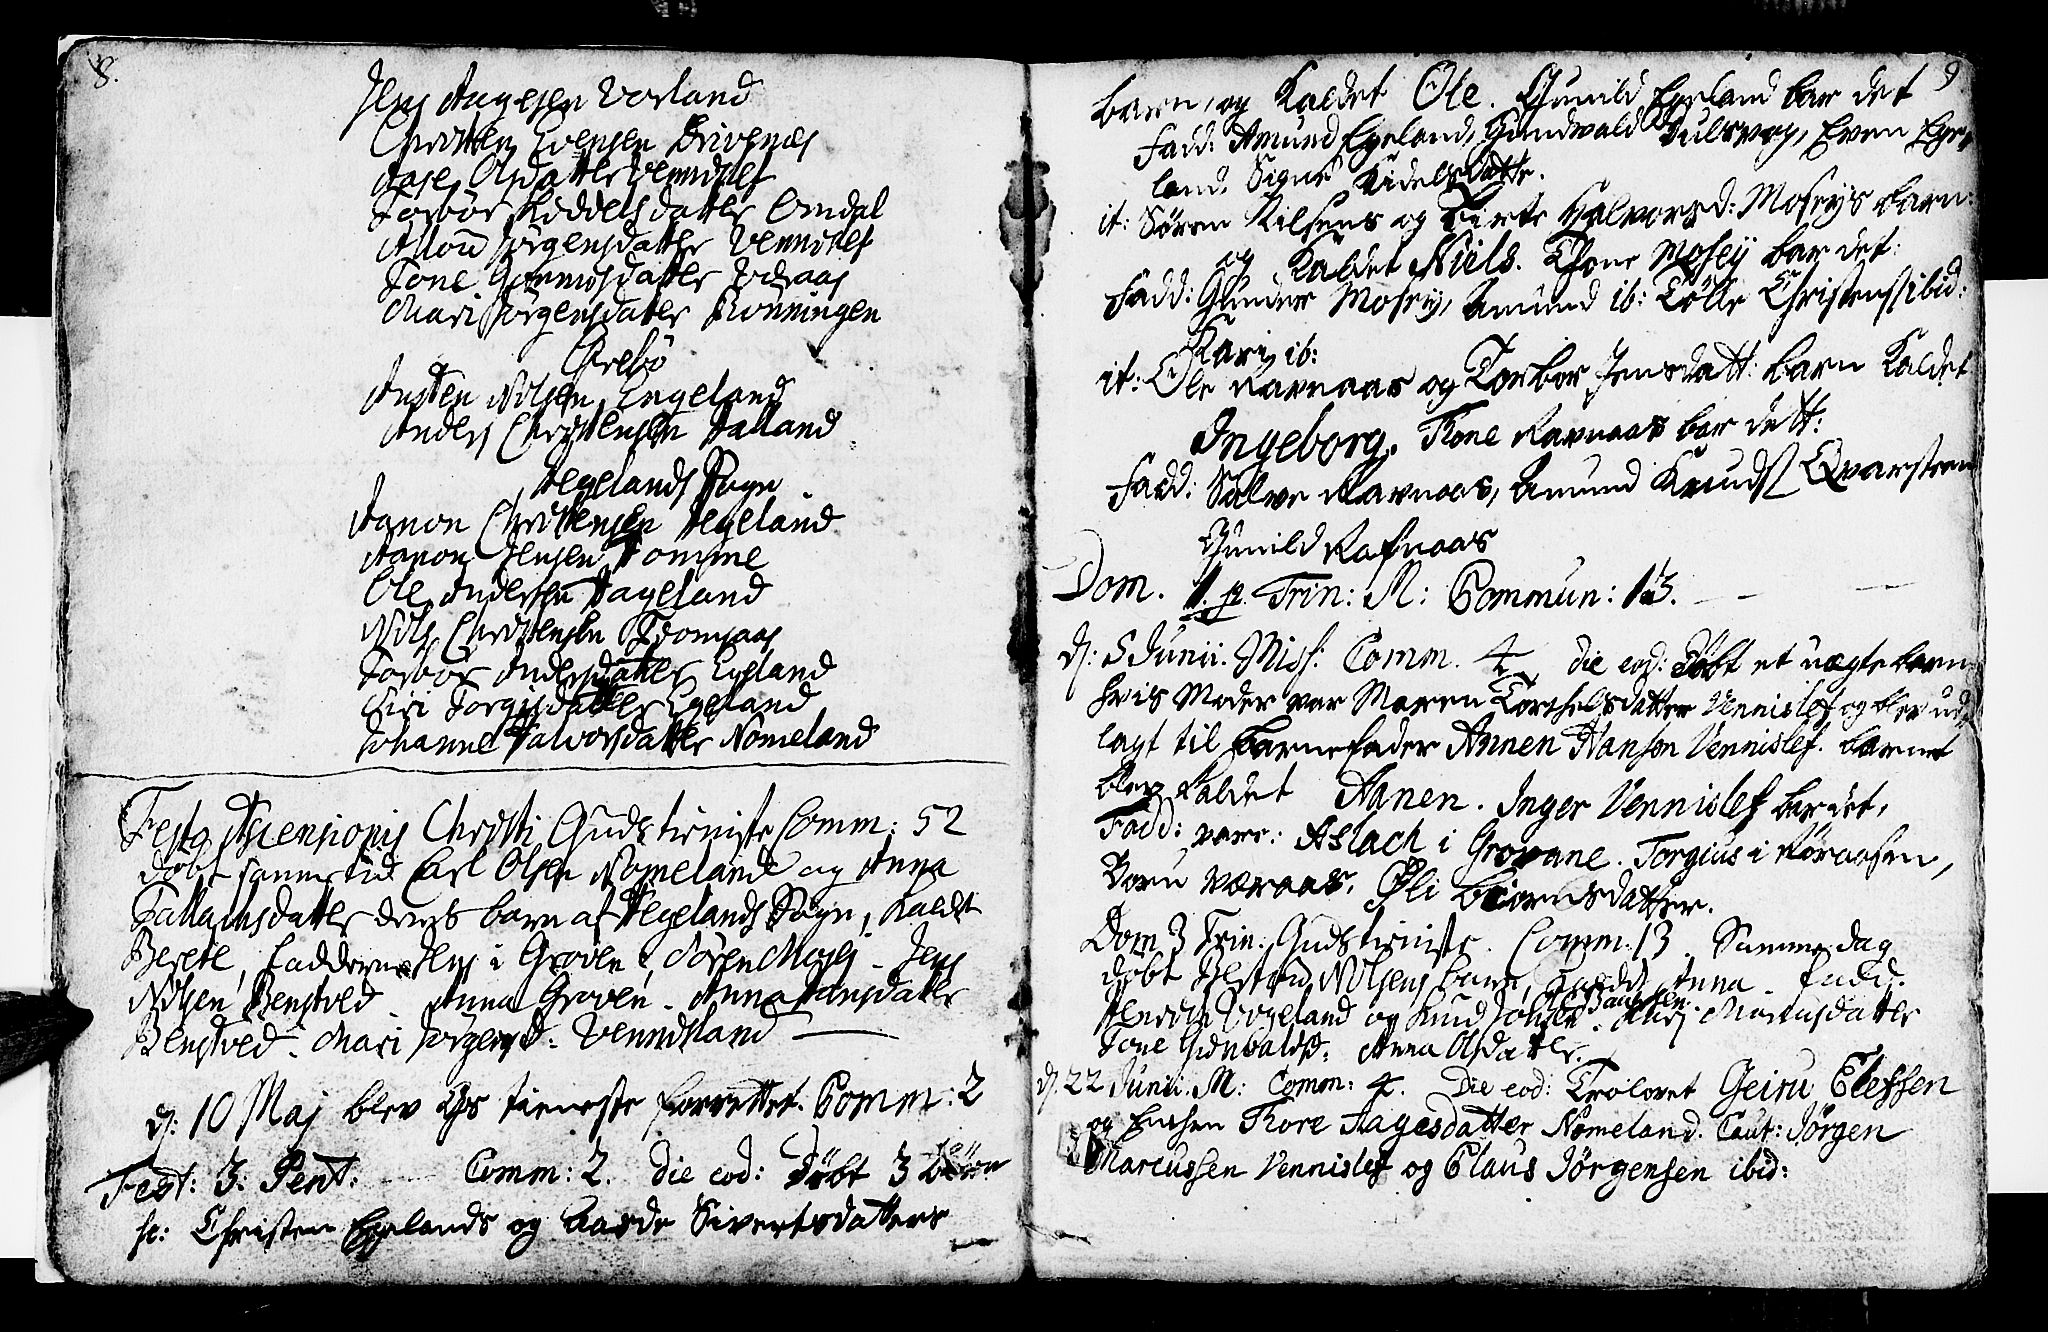 8.
Jens Aagesen Vorland
Christen Evensen Drivenæs
Aase Olsdatter Vennislef
Torbör Kiddelsdatter Omdal
Allou Jörgensdatter Vennislef
Tone Gunnvsdatter Væraas
Mari Jörgensdatter Rönningen
Örebö
Austen Nilsen Engeland
Anders Christensen Halland
Hegelands Sogn
Aanon Christensen Hegeland
Aanon Jensen Tomsme
Ole Andersen Hageland
Nils Christensen Fromsaas
Torbör Andersdatter Egeland
Siri Torgisdatter Egeland
Johanne Halvorsdatter Nomeland
Festo Ascensionis Christi Gudstieniste Comm: 52
döbt samme tid Carl Olsen Nomeland og Anna
Tallaksdatter deres barn af Hegelands Sogn, kaldt
Berete, fadderne Jens i Groven, Sören Mosej - Jens
Nilsen Benstved - Anna Groven - Anna Hansdatter
Benstved - Mari Jörgensd: Vennisland
d: 10 Maj blev Gs tieneste forrettet. Comm: 2
Fest: 3: Pent: Comm: 2. die eod: Döbt 3 börn
sc: Christen Egelands og Aasde Sivertsdatters
9
barn, og kaldet Ole. Gunild Egeland bar det
Fadd: Amund Egeland, Gundwald Julsvog, Even Ege,,
land, Signe Kidelsdatter.
it: Sören Nilsens og Berte Halvorsd: Moseys barn
og kaldet Niels. Thone Mosey bar det:
Fadd: Gunder Mosey, Amund ib: Tölle Christens: ibid:
Kari ib:
it: Ole Ravnaas og Torbor Jensdatt: barn kaldet
Ingeborg. Thone Ravnaas bar dett:
Fadd: Salve Ravnaas, Amund Knuds: Qvarsteen
Gunild Rafnaas
Dom. 1. p. Trin: M: Commun: 13.
d: 5 Junii. Miss: Comm. 4 die eod: döbt et uægte barn
hvis Moder var Maren Torchelsdatter Vennislef og blev ud,,
lagt til Barnefader Annen Hansen Vennislef. Barnet
blev kaldet Aanen. Inger Vennislef bar det,
Fadd: vare: Aslach i Grovane. Torgius i Röraasen,
Joru Væraas, Öli Biornsdatter.
Dom 3 Trin: Gudstieniste. Comm: 13 Samme dag
döbt Nilsens barn, kaldt Anna. fadd.
Vogeland og Knud Mari Marcusdatter
Tone Gunvaldsd: Anna Olsdatter.
d: 22 Junii: M: Comm: 4. Die eod: Trolovet Geiru Elefsen
og Enchen Thore Aagesdatter Nomeland. Caut: Jörgen
Marcussen Vennislef og Claus Jörgensen ibid: